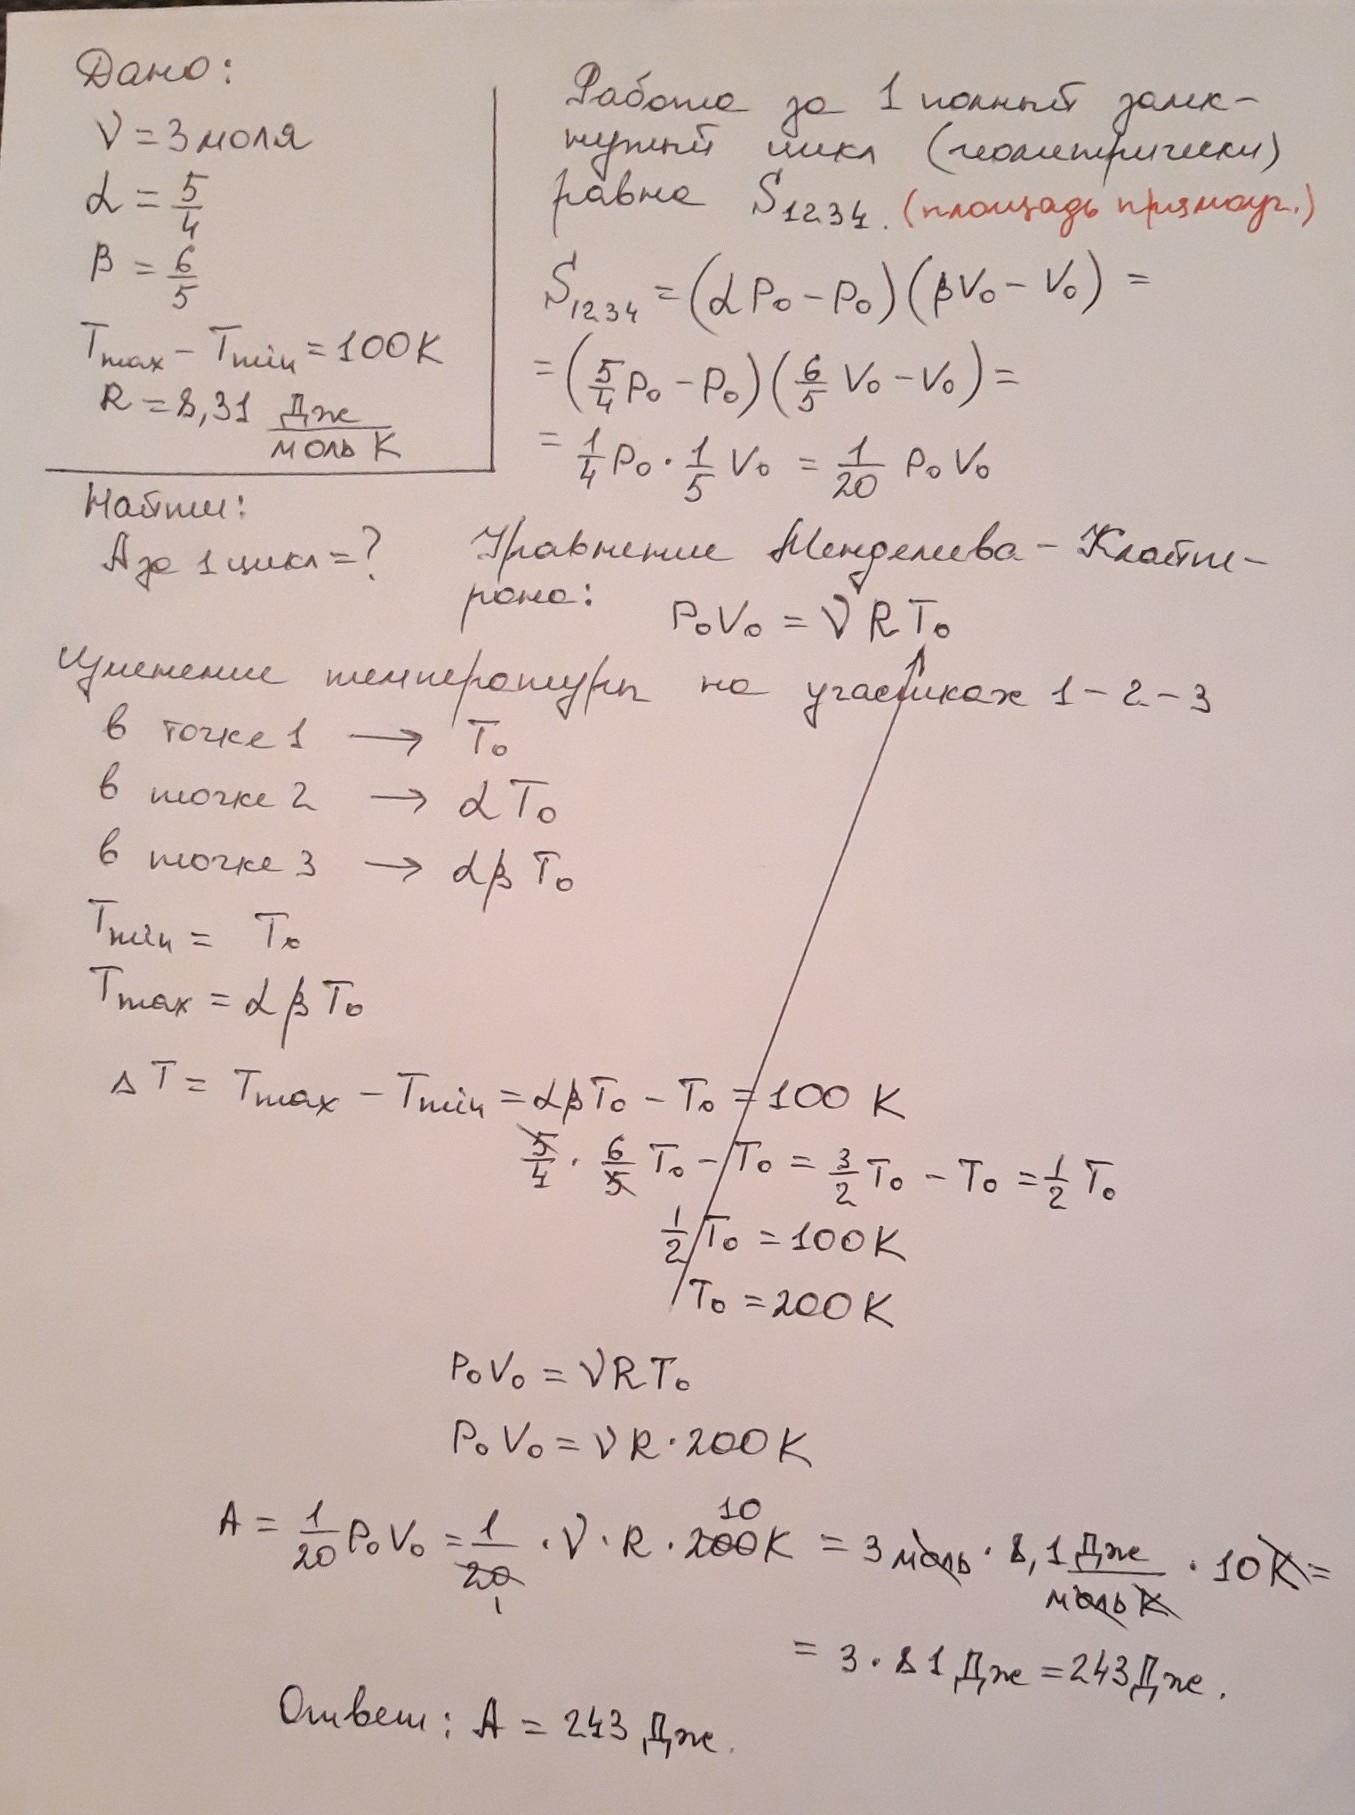 Дано:
ν = 3 моля
α = 5/4
β = 6/5
Tmax − Tmin = 100 К
R = 8,31 Дж/моль К
Найти:
A за 1 цикл = ?
Работа за 1 полный замк-
нутый цикл (геометрически)
равна S1234. (площадь прямоуг.)
S1234 = (αP₀ − P₀)(βV₀ − V₀) =
= (5/4 P₀ − P₀)(6/5 V₀ − V₀) =
= 1/4 P₀ · 1/5 V₀ = 1/20 P₀V₀
Уравнение Менделеева - Клапе-
рона: P₀V₀ = νRT₀
Изменение температуры на участках 1-2-3
в точке 1 → T₀
в точке 2 → αT₀
в точке 3 → αβT₀
Tmin = T₀
Tmax = αβT₀
ΔT = Tmax − Tmin = αβT₀ − T₀ = 100 К
5/4 · 6/5 T₀ − T₀ = 3/2 T₀ − T₀ = 1/2 T₀
1/2 T₀ = 100 К
T₀ = 200 К
P₀V₀ = νRT₀
P₀V₀ = νR · 200 К
10
A = 1/20 P₀V₀ = 1/20 · ν · R · 200 К = 3 моль · 8,1 Дж/моль К · 10 К =
1
= 3 · 81 Дж = 243 Дж.
Ответ: A = 243 Дж.